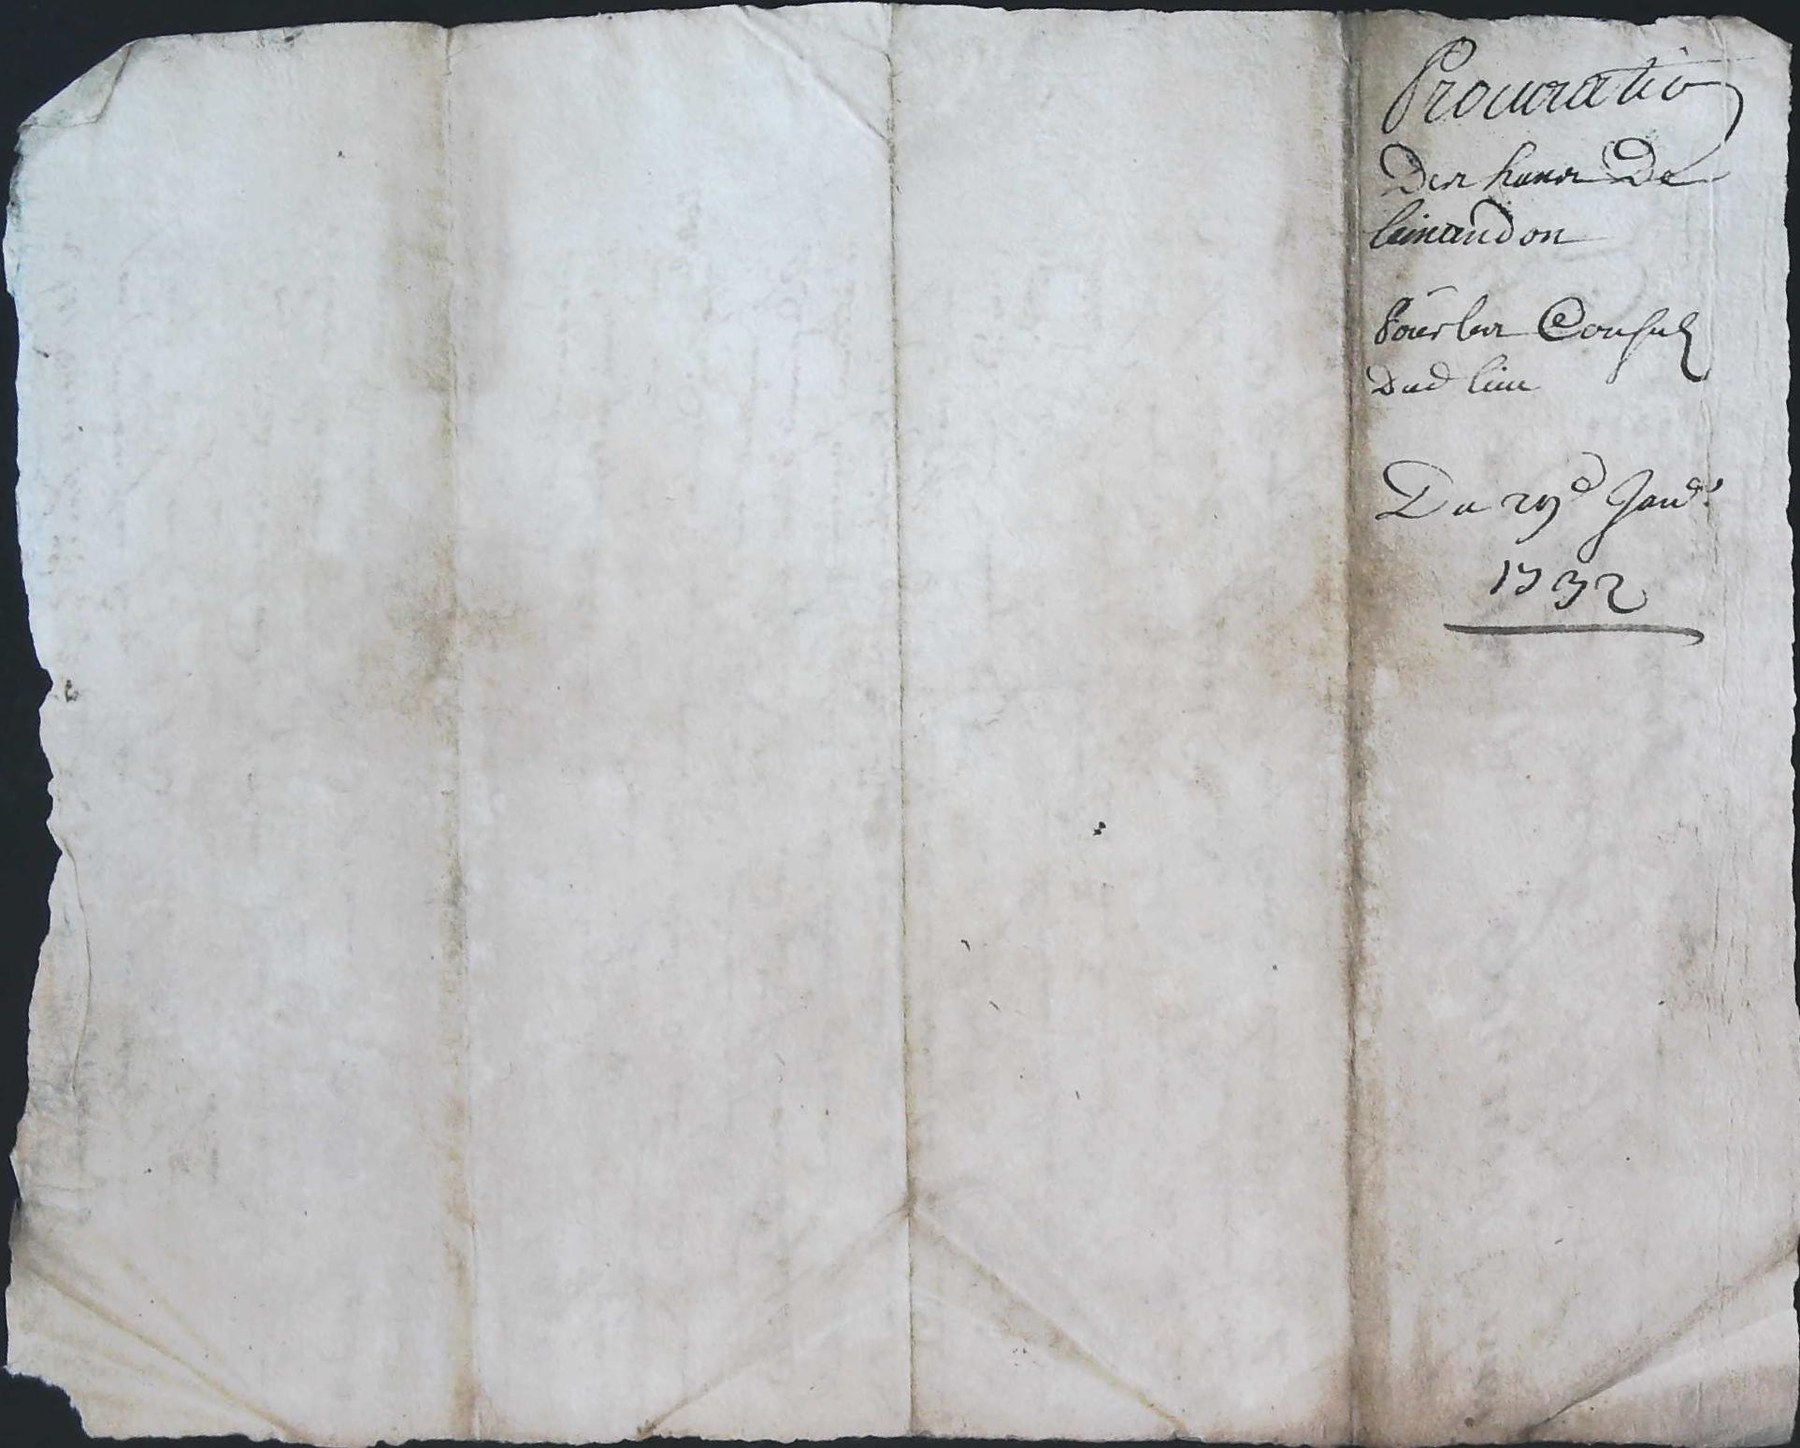 Procuratio
Des hans De
leinaudon
Pour les Consulz
Dud lieu
Du 29d Janv.
1732